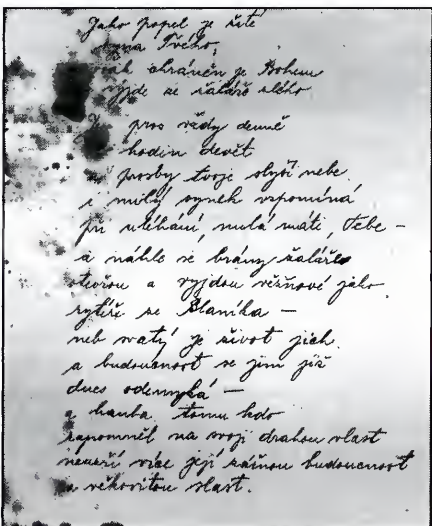 Jako popel je žití
syna Tvého,
ak chráněn je Bohem
vyjde ze žaláře zlého
pros vždy denně
hodin devět
prosby tvoje slyší nebe
i milý synek vzpomíná
při uléhání, milá máti, Tebe –
a náhle se brány žaláře
otevřou a vyjdou věžňové jako
rytíři ze Blaníka –
neb svatý je život jich
a budoucnost se jim již
dnes odemyká –
a hanba tomu kdo
zapomněl na svoji drahou vlast
neuzří více její zářnou budoucnost
a věkovitou slast.